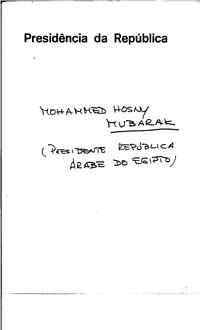 Presidência da República
MOHAMMED HOSNY
MUBARAK
(PRESIDENTE REPÚBLICA
ÁRABE DO EGIPTO)